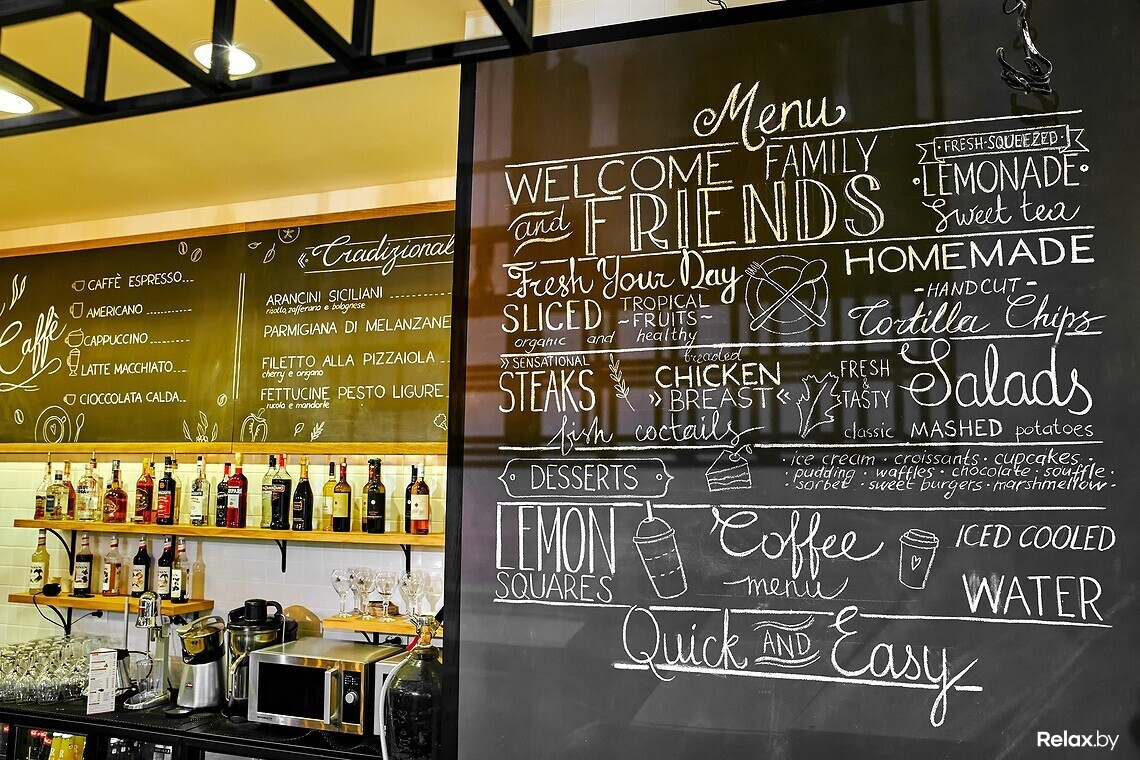 Caffè
CAFFÈ ESPRESSO...
AMERICANO ...........
CAPPUCCINO ..........
LATTE MACCHIATO...
CIOCCOLATA CALDA..
Tradizional
ARANCINI SICILIANI
risotto, zafferano e bolognese
PARMIGIANA DI MELANZANE
FILETTO ALLA PIZZAIOLA ..
cherry e organo
FETTUCINE PESTO LIGURE
rucola e mandorle
Menu
WELCOME FAMILY
and FRIENDS
FRESH-SQUEEZED
LEMONADE
Sweet tea
Fresh Your Day
SLICED TROPICAL
~FRUITS~
organic and healthy
HOMEMADE
-HANDCUT-
Tortilla Chips
» SENSATIONAL
STEAKS
breaded
CHICKEN
» BREAST «
fish coctails
FRESH
&
TASTY
Salads
classic MASHED potatoes
DESSERTS
· ice cream · croissants · cupcakes ·
pudding · waffles · chocolate · souffle ·
sorbet · sweet burgers · marshmellow ·
LEMON
SQUARES
Coffee
menu
ICED COOLED
WATER
Quick AND Easy
Relax.by